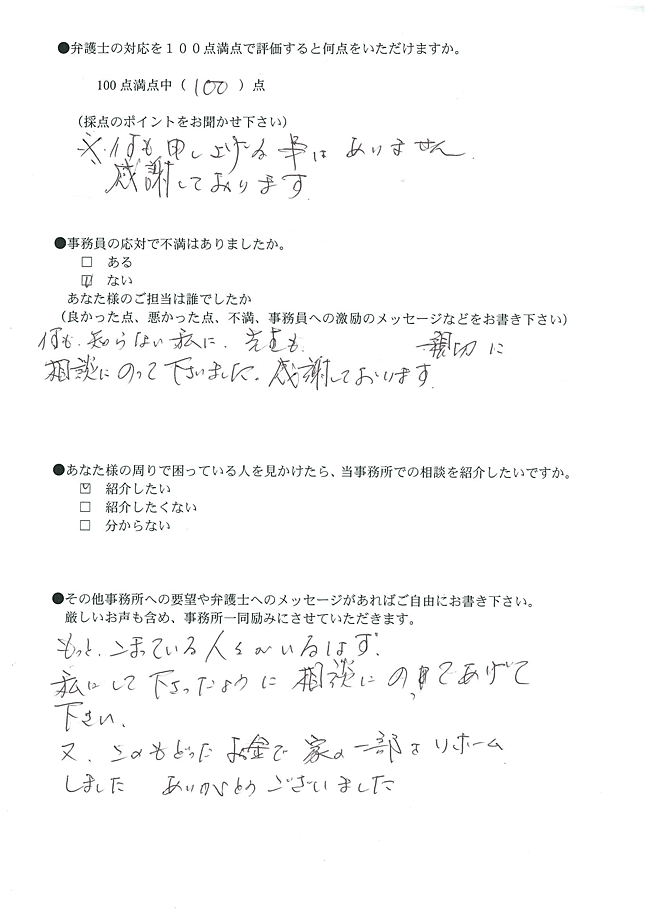 ●弁護士の対応を１００点満点で評価すると何点をいただけますか。
100点満点中（ 100 ）点
（採点のポイントをお聞かせ下さい）
※何も申し上げる事はありません.
感謝しております
●事務員の応対で不満はありましたか。
□ ある
☑ ない
あなた様のご担当は誰でしたか
（良かった点、悪かった点、不満、事務員への激励のメッセージなどをお書き下さい）
何も知らない私に、先生も 親切に
相談にのって下さいました。感謝しております
●あなた様の周りで困っている人を見かけたら、当事務所での相談を紹介したいですか。
☑ 紹介したい
□ 紹介したくない
□ 分からない
●その他事務所への要望や弁護士へのメッセージがあればご自由にお書き下さい。
厳しいお声も含め、事務所一同励みにさせていただきます。
もっと、こまっている人々がいるはず、
私にして下さったように相談にのってあげて
下さい、
又、このもどったお金で家の一部をリホーム
しました ありがとうございました